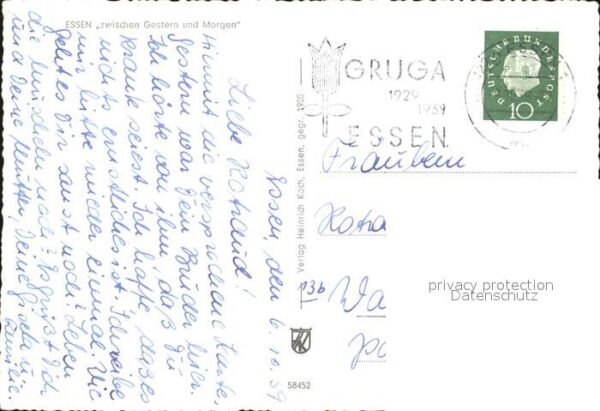 ESSEN „zwischen Gestern und Morgen"
Essen, den 6.10.59
Liebe Rotraud!
Hiermit die versprochene Karte.
Gestern war Dein Bruder hier.
Ich hörte von ihm, daß Du
krank seiest. Ich hoffe daß es
nichts ernstliches ist. Schreibe
mir bitte wieder einmal. Wie
geht es Dir sonst noch? Leben
die noch? Es grüßt Dich
und Deine Mutter, Deine
Familie.
Verlag Heinrich Koch, Essen, gegr. 1900
58452
GRUGA
1929
1959
ESSEN
DEUTSCHE BUNDESPOST
10
Fräulein
Rotra
13b
Wa
privacy protection
Datenschutz